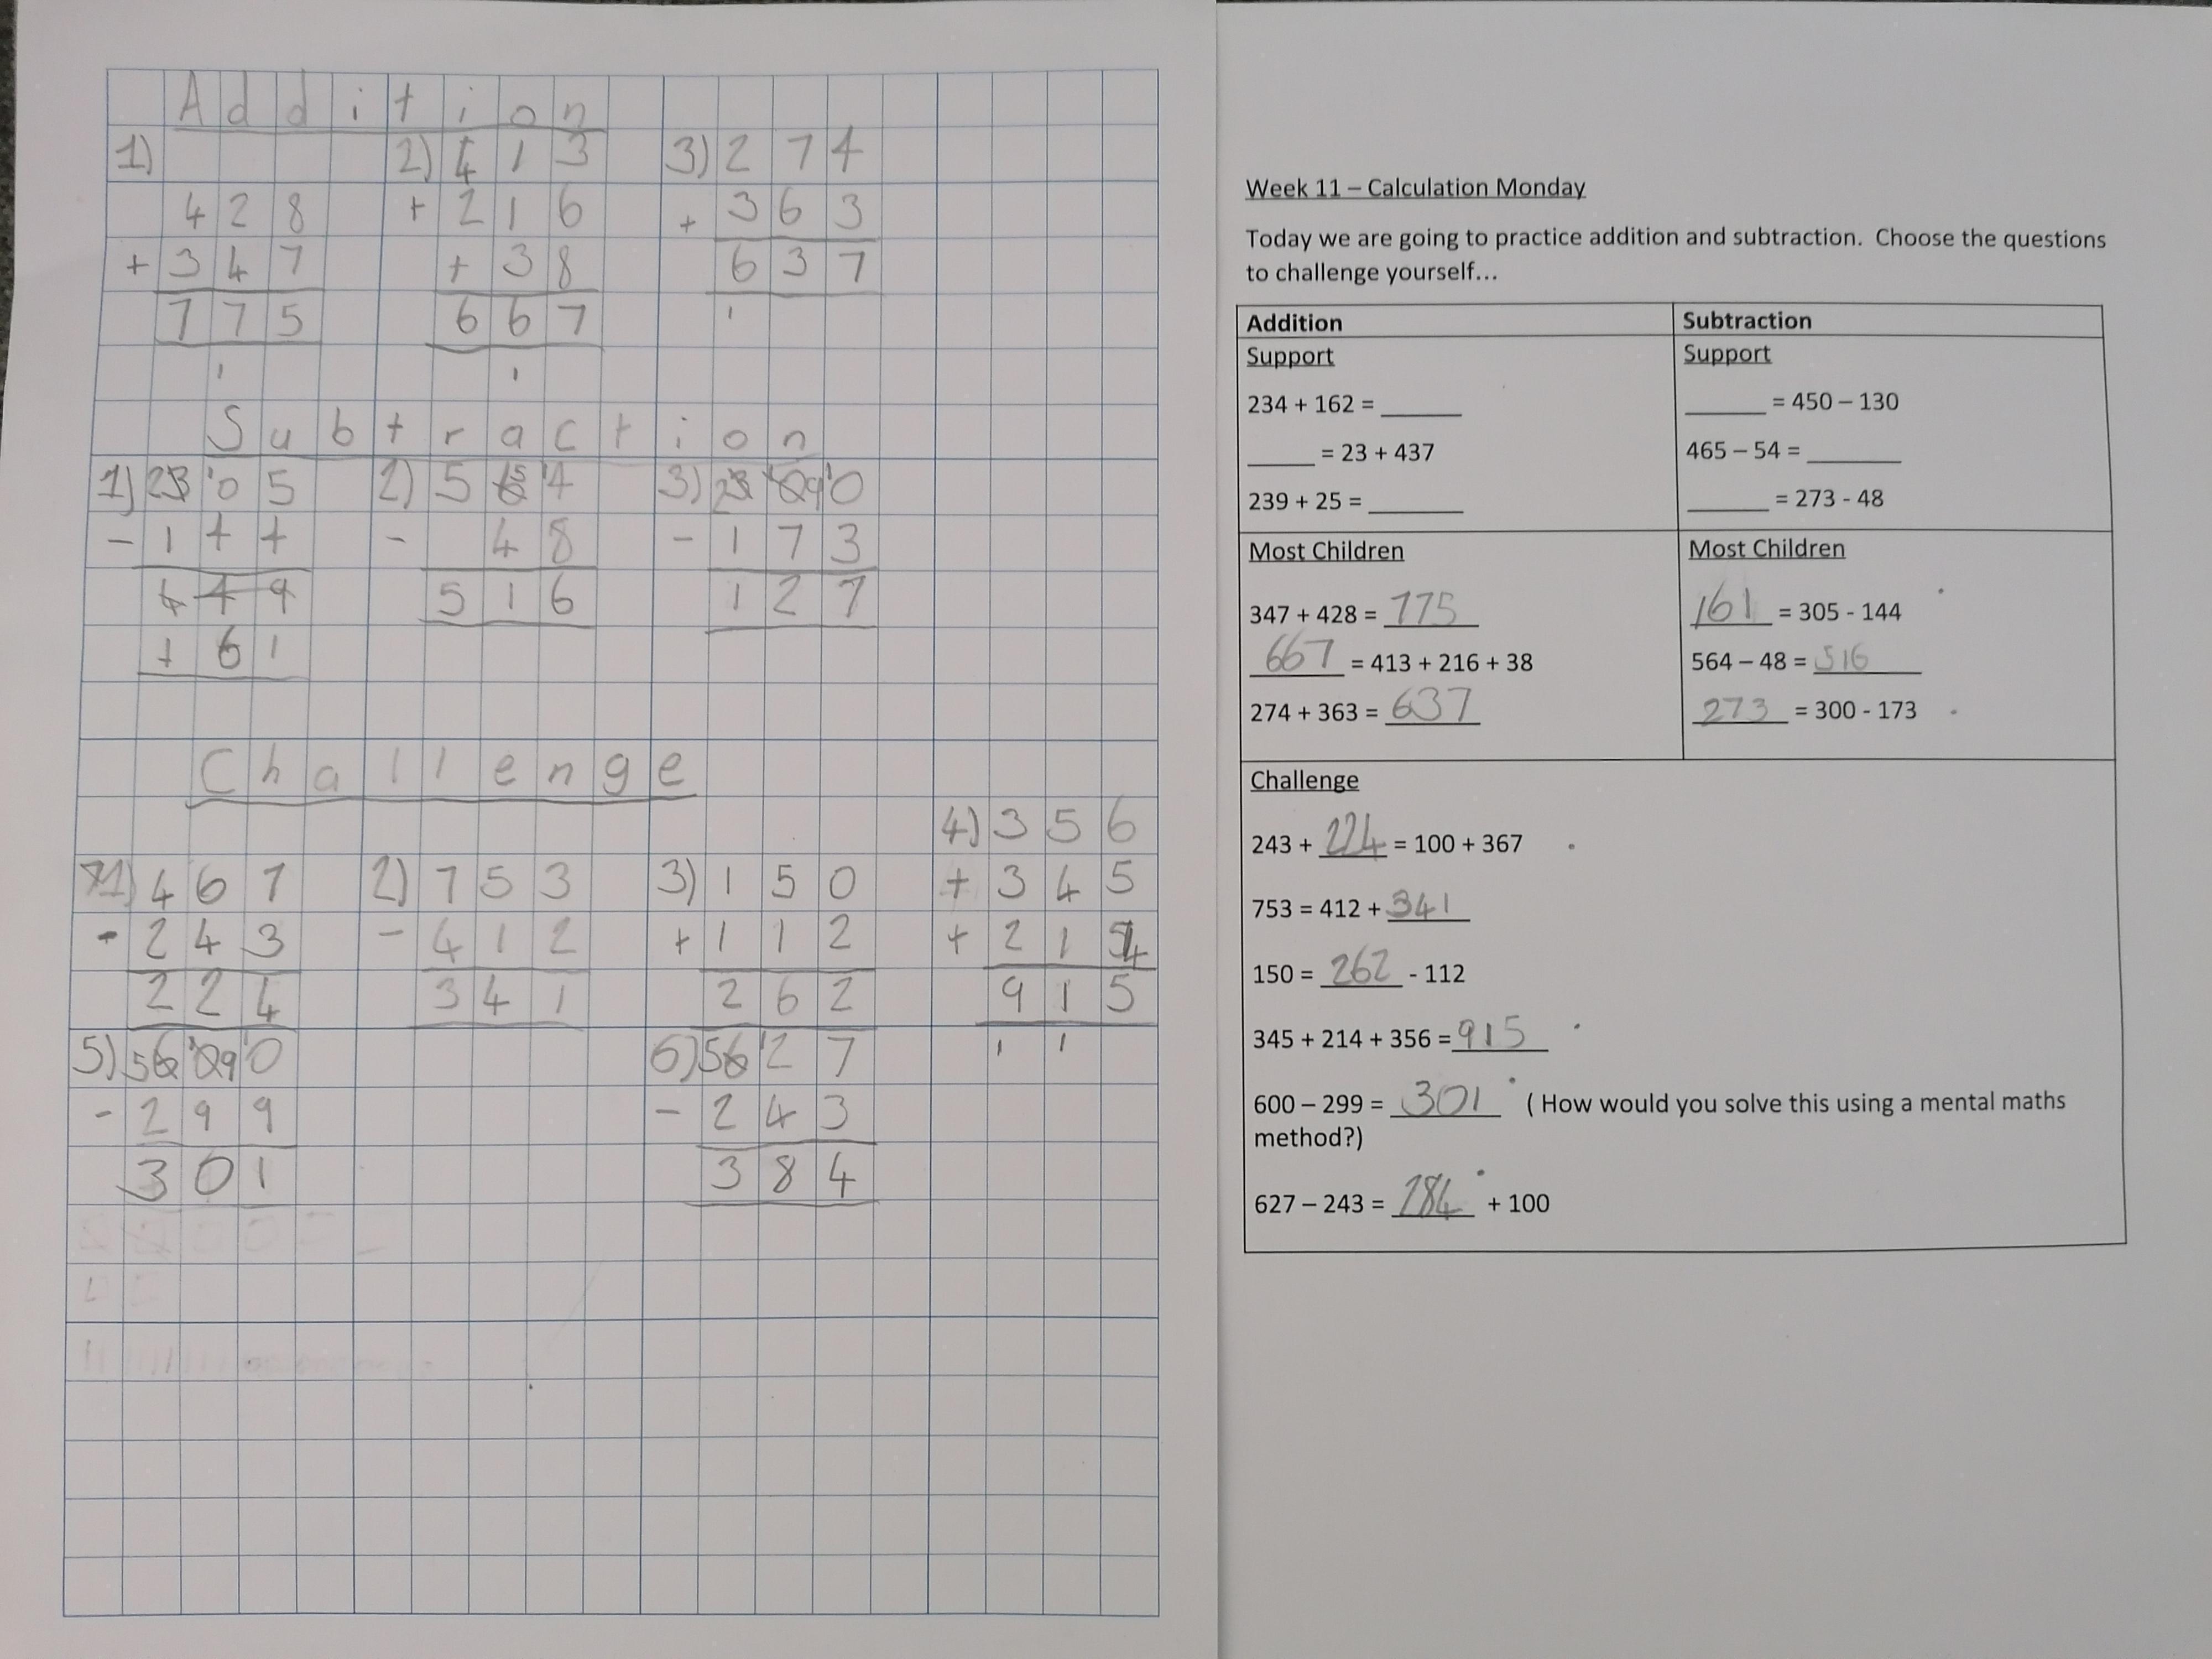 Addition
1) 2) 413 3) 274
428 + 216 + 363
+ 347 + 38 637
775 667 1
1 1
Subtraction
1) 23 105 2) 5 65 14 3) 23 10 9 10
- 144 - 48 - 173
449 516 127
161
Challenge
4) 356
1) 467 2) 753 3) 150 + 345
- 243 - 412 + 112 + 214
224 341 262 915
5) 56 10 9 10 6) 56 12 7 1 1
- 299 - 243
301 384
Week 11 – Calculation Monday
Today we are going to practice addition and subtraction. Choose the questions
to challenge yourself...
Addition
Support
234 + 162 = ______
_____ = 23 + 437
239 + 25 = _______
Subtraction
Support
______ = 450 – 130
465 – 54 = _______
______ = 273 - 48
Most Children
347 + 428 = 775
667 = 413 + 216 + 38
274 + 363 = 637
Most Children
161 = 305 - 144
564 – 48 = 516
273 = 300 - 173
Challenge
243 + 224 = 100 + 367
753 = 412 + 341
150 = 262 - 112
345 + 214 + 356 = 915
600 – 299 = 301 ( How would you solve this using a mental maths
method?)
627 – 243 = 284 + 100